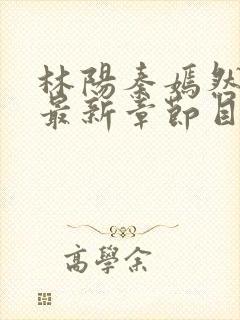 林陽秦嫣然
最新章節目
高學余